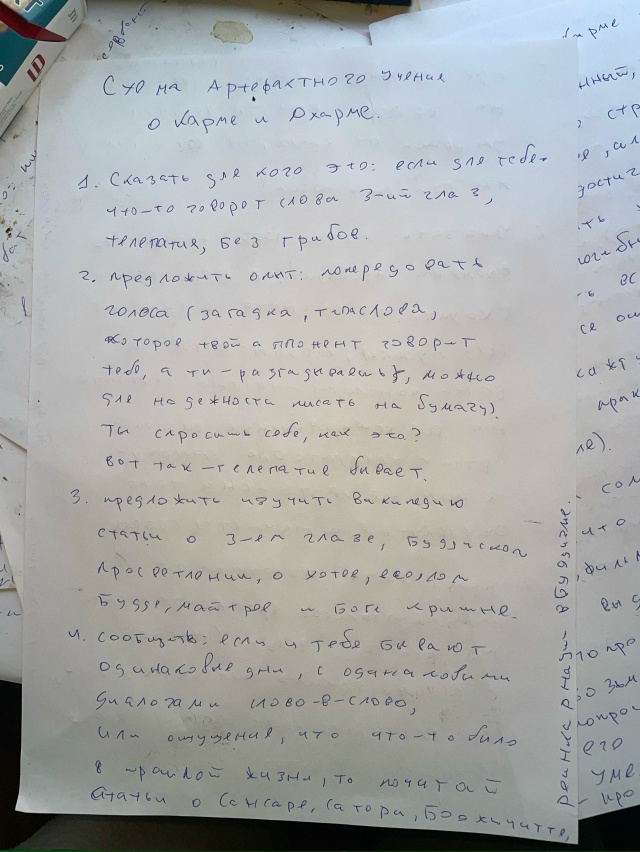 Схема Артефактного Учения
о Карме и Дхарме.
1. Сказать для кого это: если для тебя
что-то говорят слова 3-ий глаз,
телепатия, без грибов.
2. предложить опыт: попередовать
голоса (загадка, слова,
которое твой аппонент говорит
тебе, а ты - разгадываешь, можно
для надежности писать на бумагу).
ты спросишь себе, как это?
вот так - телепатие бывает.
3. предложить изучить википедию
статьи о 3-ем глазе, Буддиском
просветлении, о хотее, веселом
Будде, майтрее и Боге Кришне.
4. сообщить: если и тебе бывают
одинаковые дни, с одинаковыми
диалогами слово-в-слово,
или ощущения, что что-то было
в прошлой жизни, то почитай
статьи о Сансаре, Сатори, Бодхичитте,
реинкарнации в буддизме.
карме
нный,
стр
ть
се
прак
сом
что
фильм
вы
го про
его
уме
- про